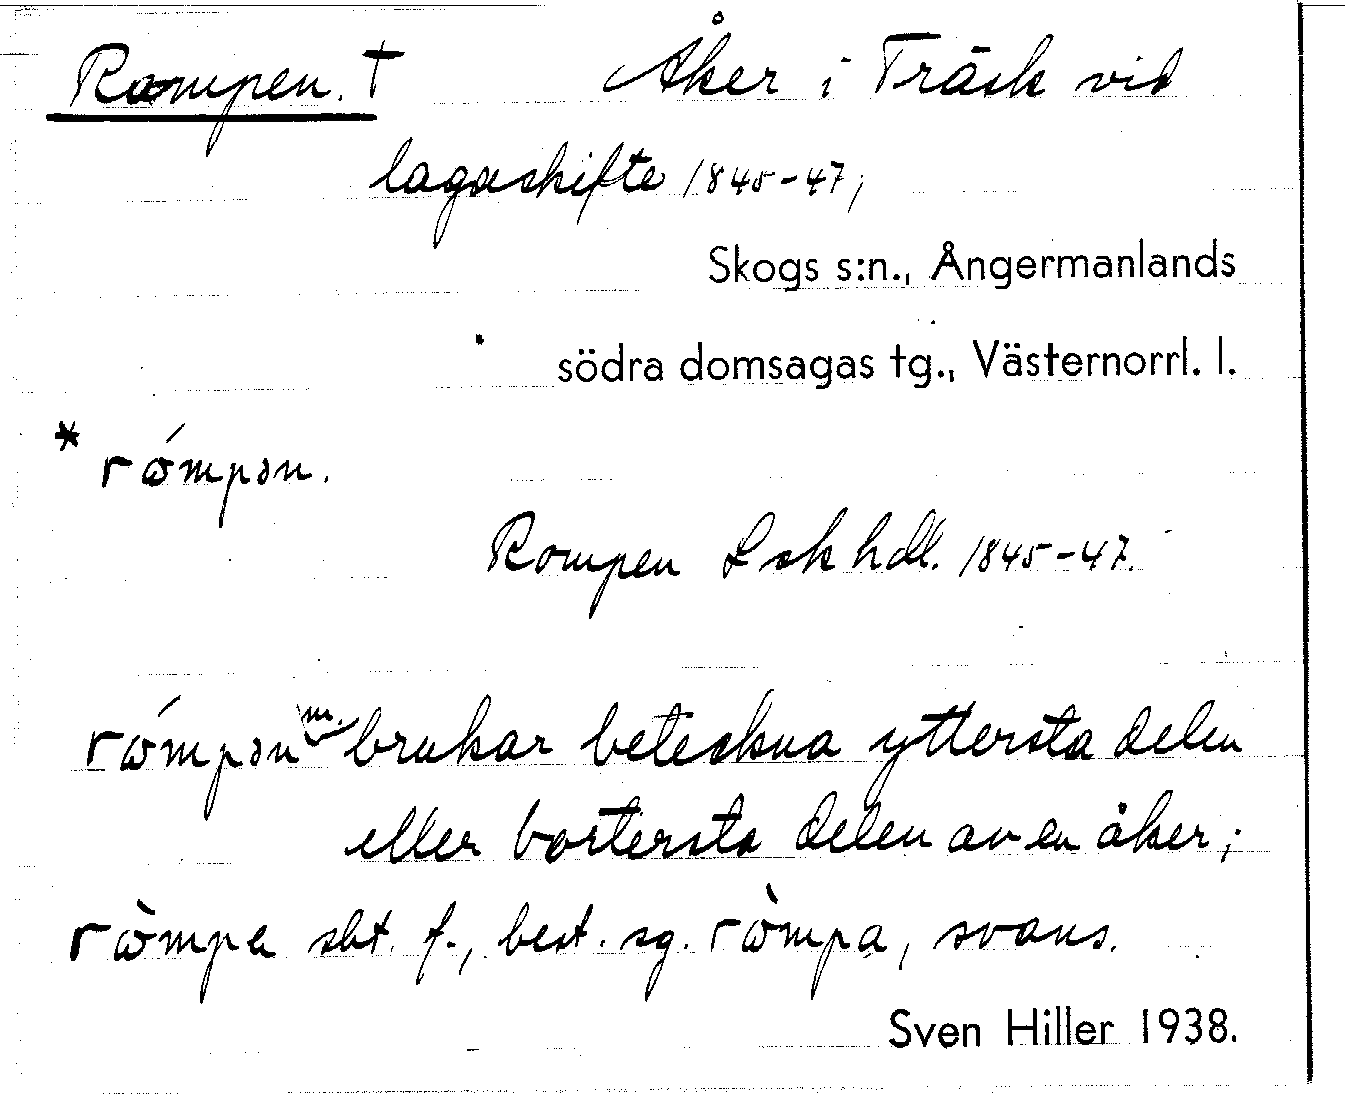 Rompen. †   Åker i Träsk vid
lagaskifte 1845-47,
Skogs s:n., Ångermanlands
södra domsagas tg., Västernorrl. l.
* rómpən.
Rompen Lskhdl. 1845-47.
rómpən m. brukar beteckna yttersta delen
eller bortersta delen av en åker;
ròmpa sbt. f., best. sg. ròmpa, svans.
Sven Hiller 1938.